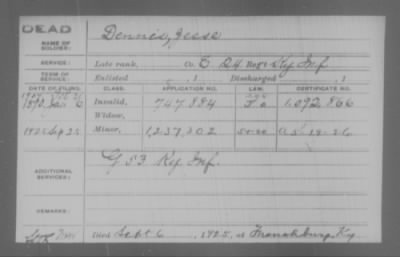 DEAD
NAME OF SOLDIER: Dennis, Jesse
SERVICE: Late rank, Co. E 24 Reg't Ky Inf
TERM OF SERVICE: Enlisted , 1 Discharged , 1
DATE OF FILING. CLASS. APPLICATION NO. LAW. CERTIFICATE NO.
1890 6 Invalid, 747.884 1.092.866
Widow,
Minor, 1,237,202
ADDITIONAL SERVICES: G 53 Ky Inf.
REMARKS:
Died Sept 6, 1925, at Ky